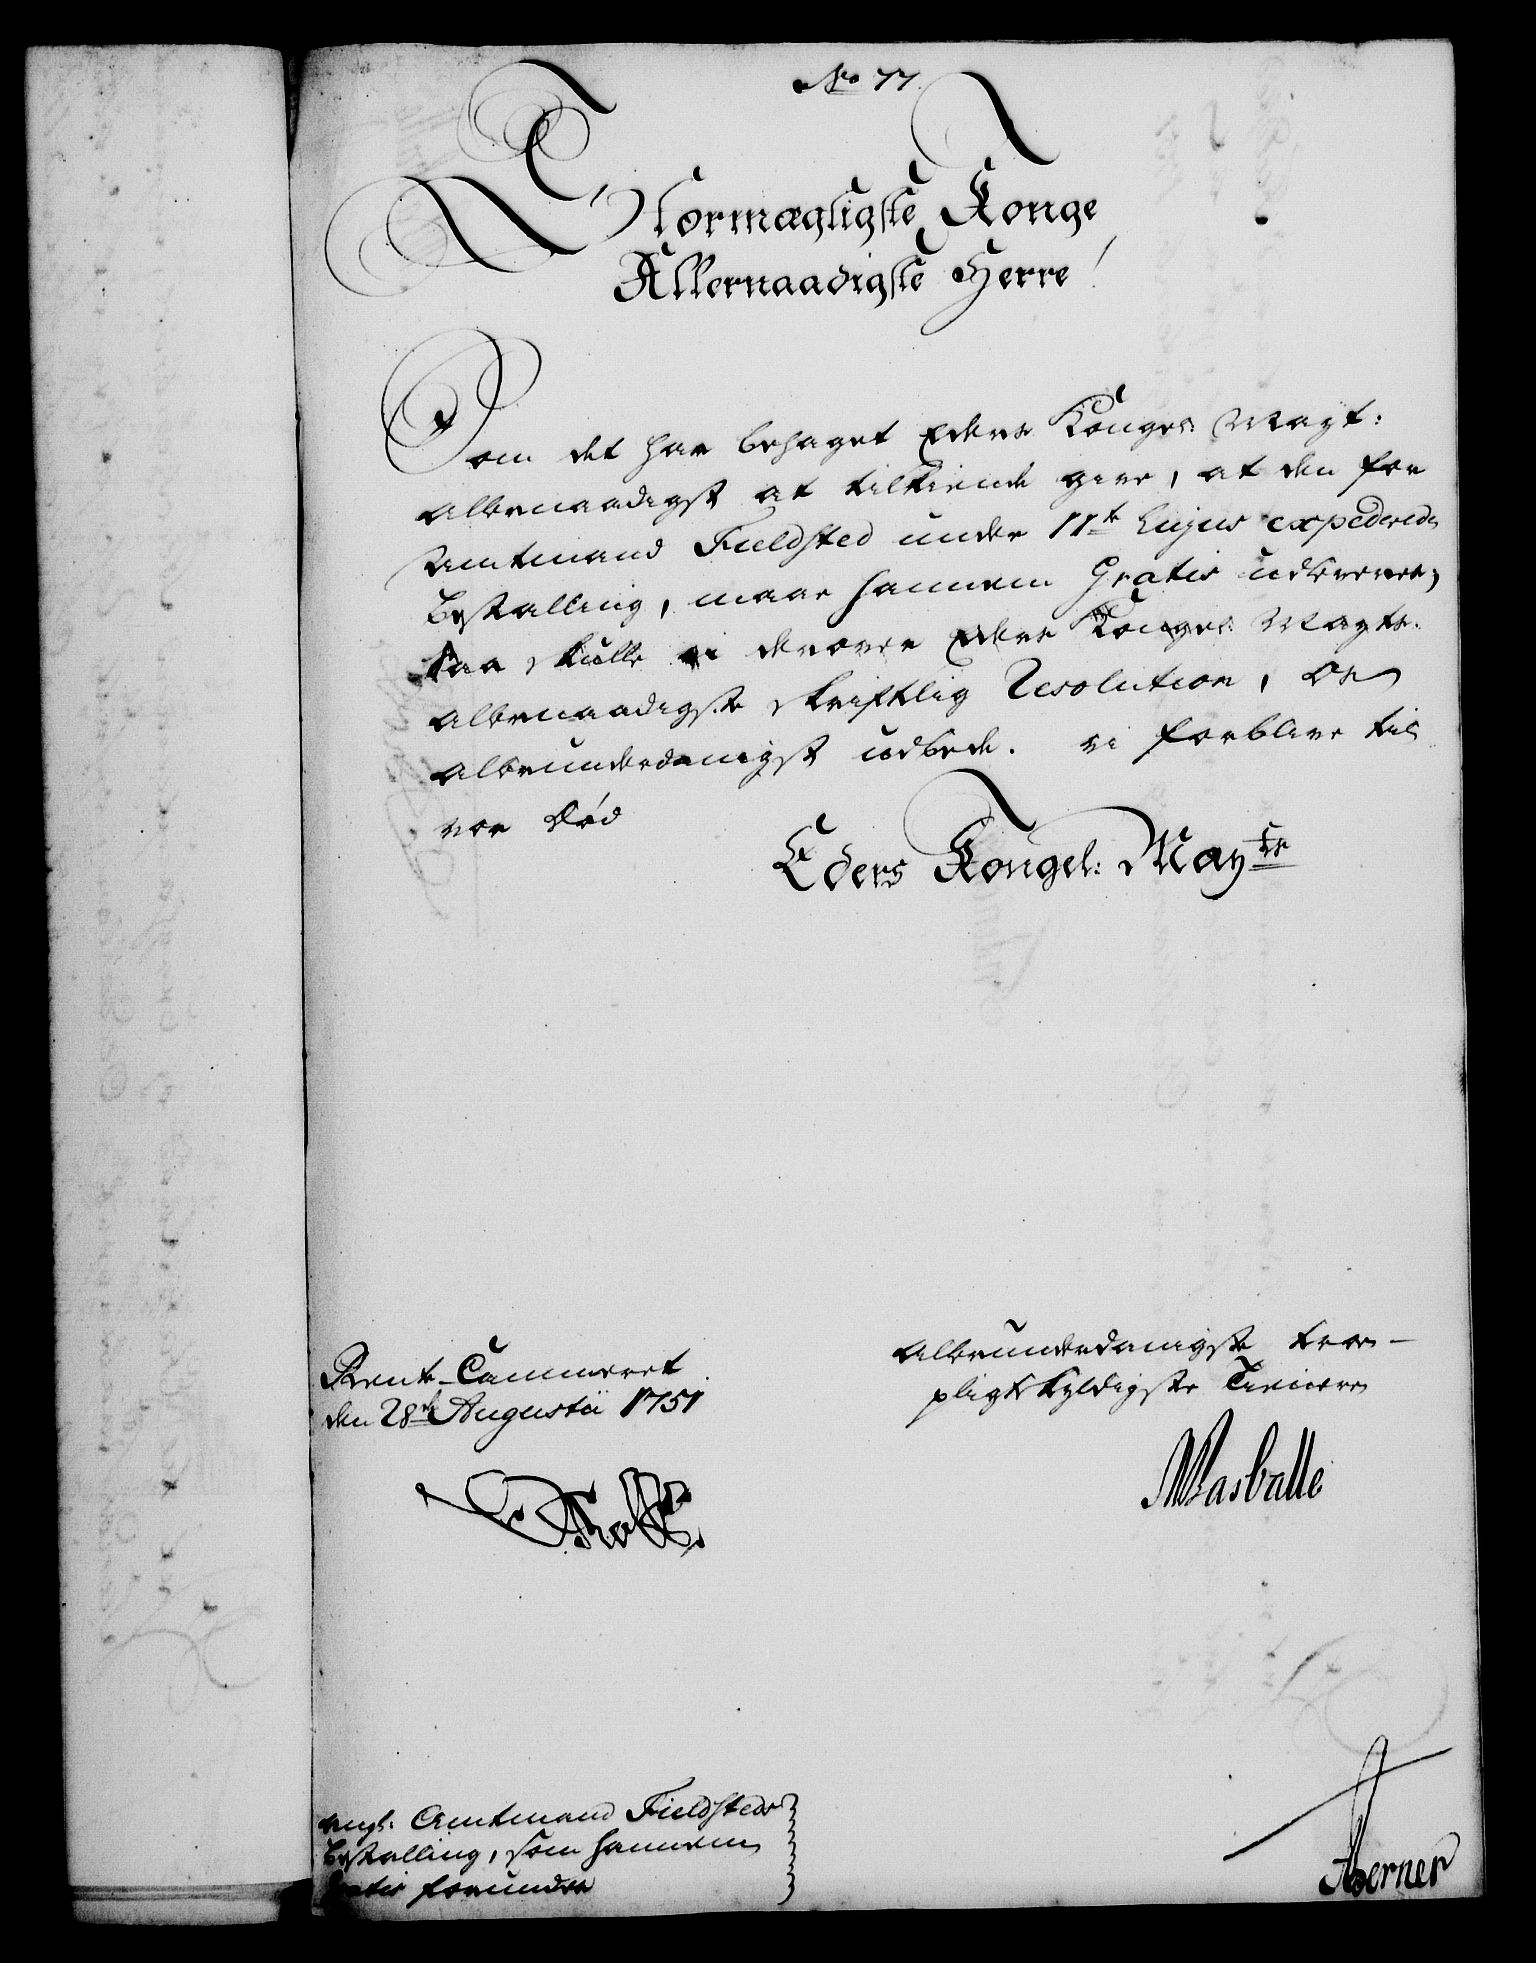 No 77.
Stormægtigste Konge
Allernaadigste Herre!
Som det har behaget Eders Konges Mayt:
allernaadigst at tilkiende give, at den for
Amtmand Fieldsted under 11te hujus expederede
Bestalling, maae hannem Gratis udleveres,
saa skulle vi derover Eders Konges Mayts.
allernaadigste skriftlig Resolution, os
allerunderdanigst udbede. vi forblive til
vor Død
Eders Kongel: Mayts
Rente-Cammeret
den 28de Augustii 1751
allerunderdanigste troe-
pligtskyldigste Tienere
Masballe
angl. Amtmand Fieldsteds
Bestalling, som hannem
Gratis forundes